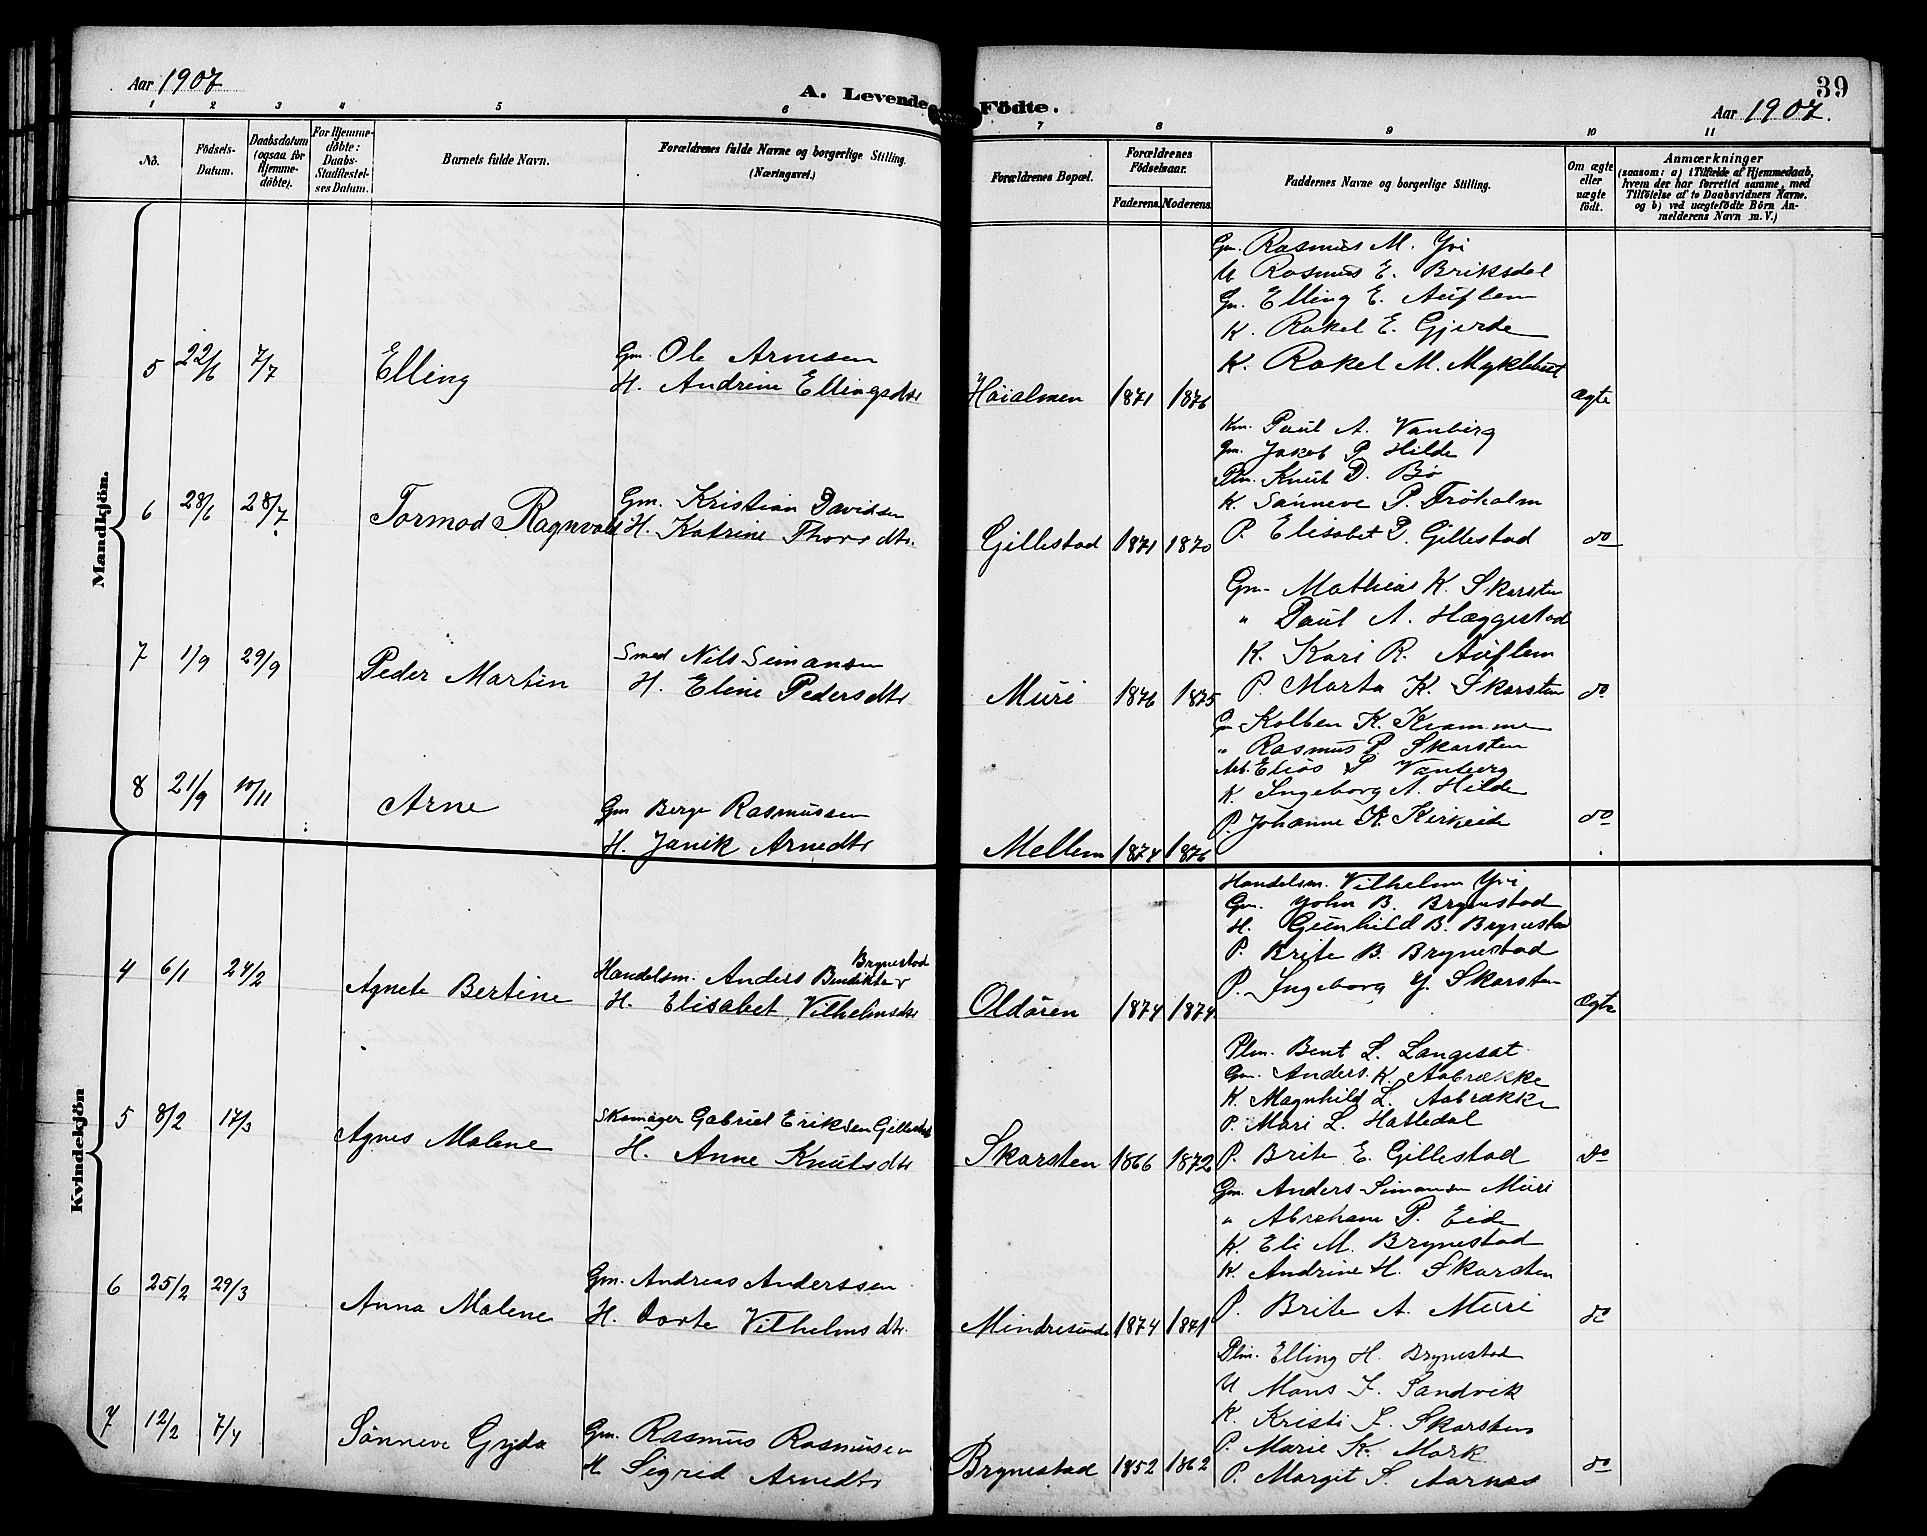 Aar 1907
A. Levende Födte.
39
Aar 1907.
1 2 3 4 5 6 7 8 9 10 11
No. Födsels-Datum. Daabsdatum (ogsaa för Hjemmedöbte). For Hjemmedöbte: Daabs-Stadfæstelses Datum. Barnets fulde Navn. Forældrenes fulde Navne og borgerlige Stilling. (Næringsvei.) Forældrenes Bopæl. Forældrenes Födselsaar. Faderens. Moderens. Faddernes Navne og borgerlige Stilling. Om ægte eller uægte födt. Anmærkninger (saasom: a) i Tilfælde af Hjemmedaab, hvem der har forrettet samme, med Tilföielse af to Daabsvidners Navne, og b) ved uægtefödte Börn Anmelderens Navn m. V.)
Mandkjön.
Gm. Rasmus M. Yri
U Rasmus E. Briksdal
Gm. Elling E. Auflem
K. Rakel E. Gjerde
K. Rakel M. Myklebust
5 22/6 7/7 Elling Gm. Ole Arnesen
H. Andrine Ellingsdtr Höialmen 1871 1876 ægte
Km. Paul A. Vanberg
Gm. Jakob P. Hilde
Plm. Knut D. Bö
K. Sönneve P. Tröholm
6 28/6 28/7 Tormod Ragnvald Gm. Kristian Davidsen
H. Katrine Thorsdtr. Gillestad 1871 1870 P. Elisabet P. Gillestad do
Gm. Mathias K. Skarsten
" Paul A. Hæggestad
K. Kari R. Auflem
7 1/9 29/9 Peder Martin Smed Nils Simonsen
H. Eline Pedersdtr Muri 1876 1875 P. Marta K. Skarsten do
Gm Kolben K. Kvamme
" Rasmus P. Skarsten
Arb. Elias S. Vanberg
K. Ingeborg A. Hilde
P. Johanne K. Kirkeide do
8 21/9 10/11 Arne Gm Berge Rasmussen
H. Janik Arnedtr Mellem 1874 1876
Kvindekjön
Handelsm. Vilhelm Yri
Gm. John B. Brynestad
H. Gunhild B. Brynestad
P. Brite B. Brynestad
P. Ingeborg J. Skarsten
4 6/1 24/2 Agnete Bertine Handelsm. Anders Bendiktsen Brynestad
H. Elisabet Vilhelmsdtr Oldören 1874 1874 ægte
Plm. Bent L. Langesæt
Gm. Anders K. Aabrække
K. Magnhild L. Aabrække
P. Mari L. Hatledal
5 8/2 17/3 Agnes Malene Skomager Gabriel Eriksen Gillestad
H. Anne Knutsdtr Skarsten 1866 1872 P. Brite E. Gillestad do
Gm. Anders Simonsen Muri
" Abraham P. Eide
K. Eli M. Brynestad
K. Andrine H. Skarsten
6 25/2 29/3 Anna Malene Gm. Andreas Anderssen
H. Dorte Vilhelmsdtr. Mindresunde 1874 1871 P. Brite A. Muri do
Plm. Elling H. Brynestad
U Mons I. Sandvik
K. Kristi I. Skarsten
P. Marie K. Mork
7 12/2 7/4 Sönneve Gyda Gm. Rasmus Rasmusen
H Sigrid Arnedtr Brynestad 1852 1862 P. Margit S. Aarnes do